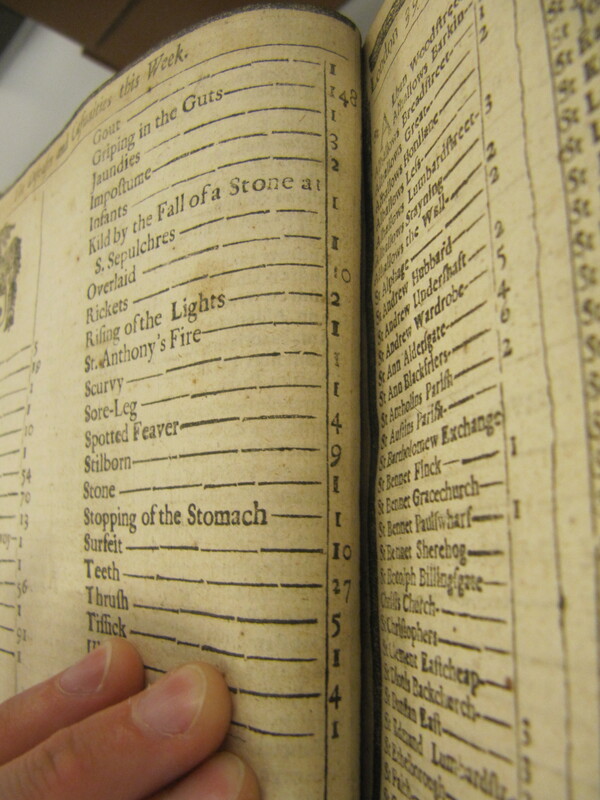 and Caſualties this Week.
Gout 1
Griping in the Guts 148
Jaundies 1
Impoſtume 3
Infants 2
Kild by the Fall of a Stone at
S. Sepulchres 1
Overlaid 1
Rickets 10
Riſing of the Lights 2
St. Anthony's Fire 1
Scurvy 1
Sore-Leg 1
Spotted Feaver 4
Stilborn 9
Stone 1
Stopping of the Stomach 1
Surfeit 10
Teeth 27
Thruſh 5
Tiſſick 1
4
1
19
1
1
10
1
54
70
13
1
1
56
1
91
1
London
Alban Woodſtreet 1
Alhallows Barkin 2
Alhallows Breadſtreet
Alhallows Great 3
Alhallows Honilane
Alhallows Leſs 2
Alhallows Lumbardſtreet
Alhallows Stayning 2
Alhallows the Wall 2
St Alphage
St Andrew Hubbard 2
St Andrew Underſhaft 5
St Andrew Wardrobe 4
St Ann Alderſgate 6
St Ann Blackfriers 2
St Antholins Pariſh
St Auſtins Pariſh
St Bartholomew Exchange
St Bennet Finck 1
St Bennet Gracechurch
St Bennet Paulſwharf 1
St Bennet Sherehog
St Botolph Billingſgate
Chriſts Church
St Chriſtophers
St Clement Eaſtcheap
St Dionis Backchurch
St Dunſtan Eaſt
St Edmund Lumbardſtr
St Ethelborough
St Faith